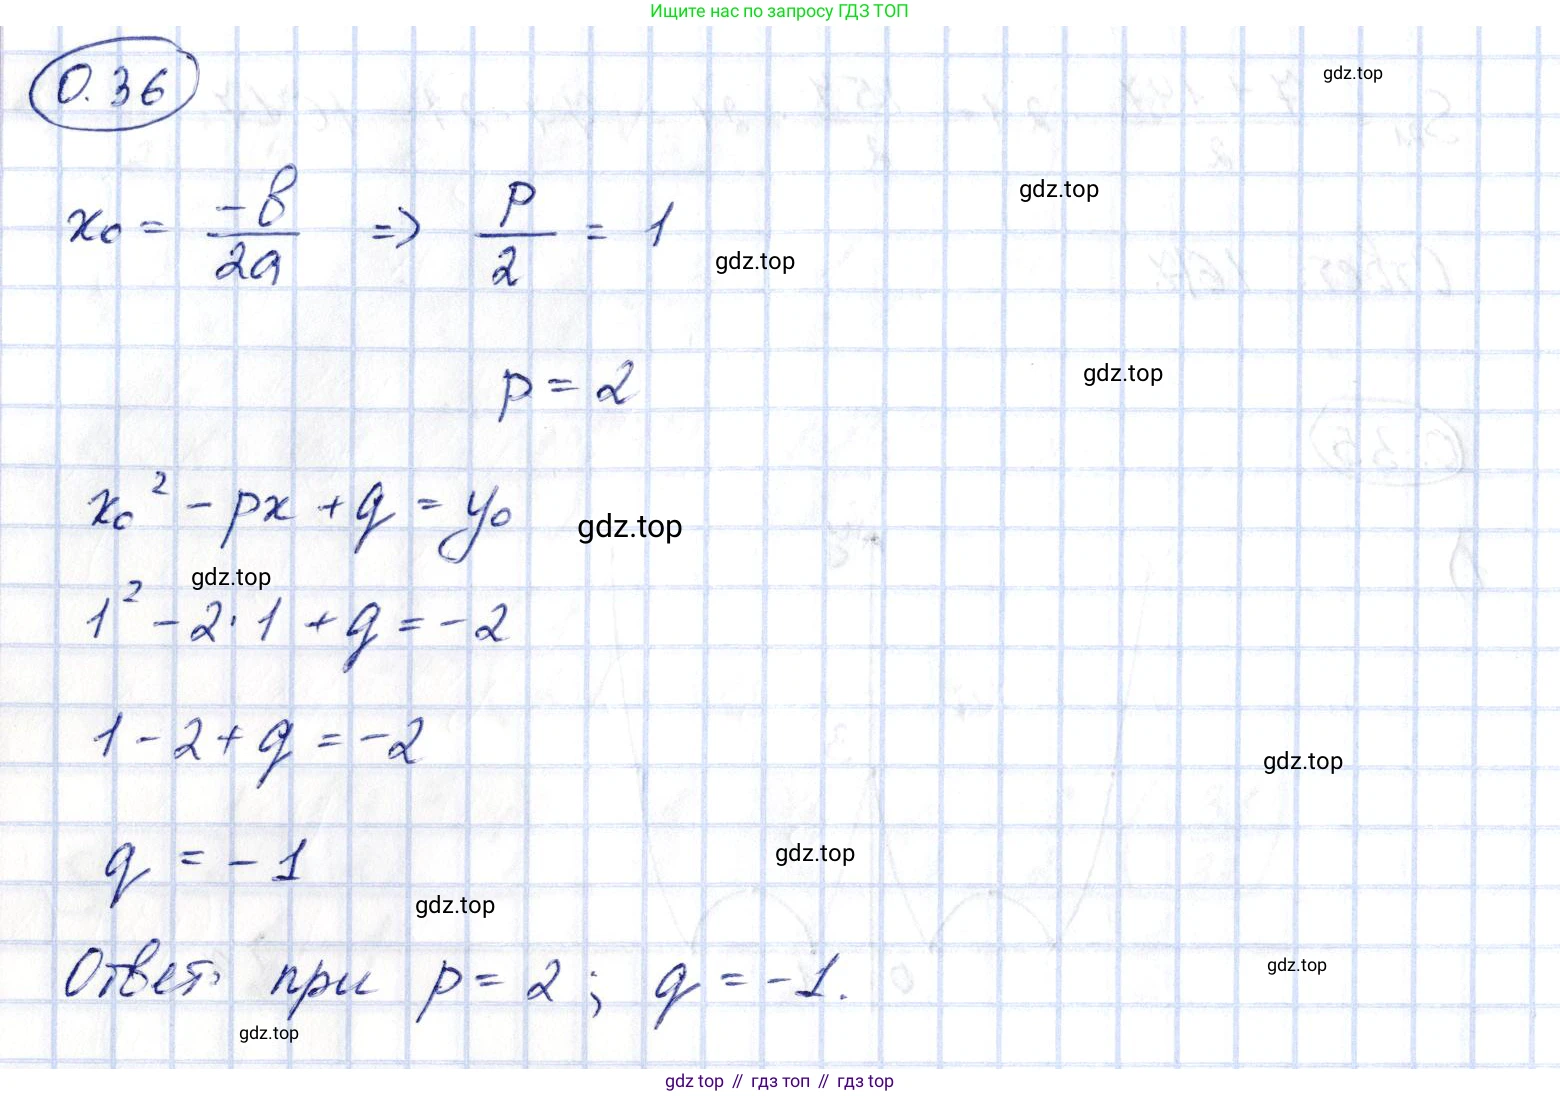 Ищите нас по запросу ГДЗ ТОП
0.36
gdz.top
x₀ = -b/2a => p/2 = 1
gdz.top
gdz.top
p = 2
gdz.top
x₀² - px + q = y₀
gdz.top
gdz.top
1² - 2·1 + q = -2
1 - 2 + q = -2
gdz.top
q = -1
gdz.top
gdz.top
Ответ: при p = 2; q = -1.
gdz.top
gdz.top
gdz top // гдз топ // гдз top